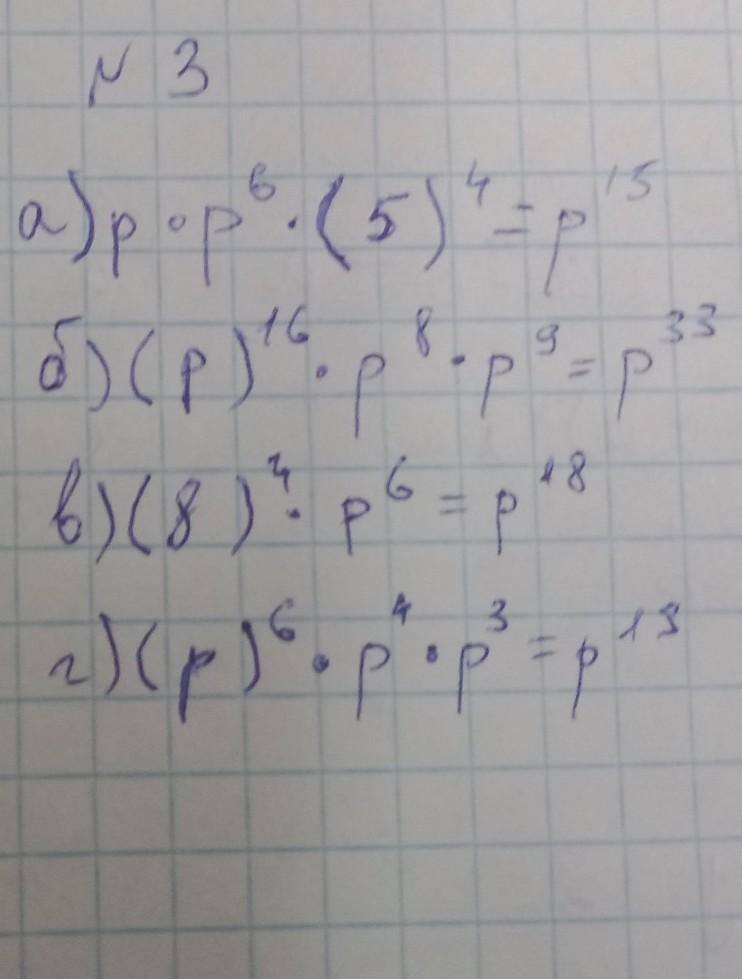 N 3
а) p · p⁶ · (5)⁴ = p¹⁵
б) (p)¹⁶ · p⁸ · p⁹ = p³³
в) (8)⁴ · p⁶ = p¹⁸
г) (p)⁶ · p⁴ · p³ = p¹³